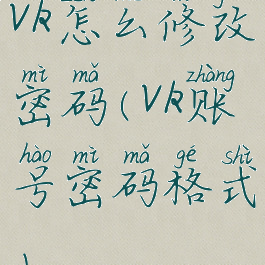 VK怎么修改
mì mǎ zhàng
密码(VK账
hào mì mǎ gé shì
号密码格式